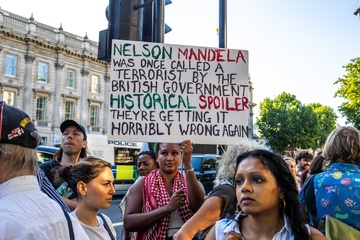 NELSON MANDELA
WAS ONCE CALLED A
TERRORIST BY THE
BRITISH GOVERNMENT
HISTORICAL SPOILER
THEY'RE GETTING IT
HORRIBLY WRONG AGAIN
POLICE